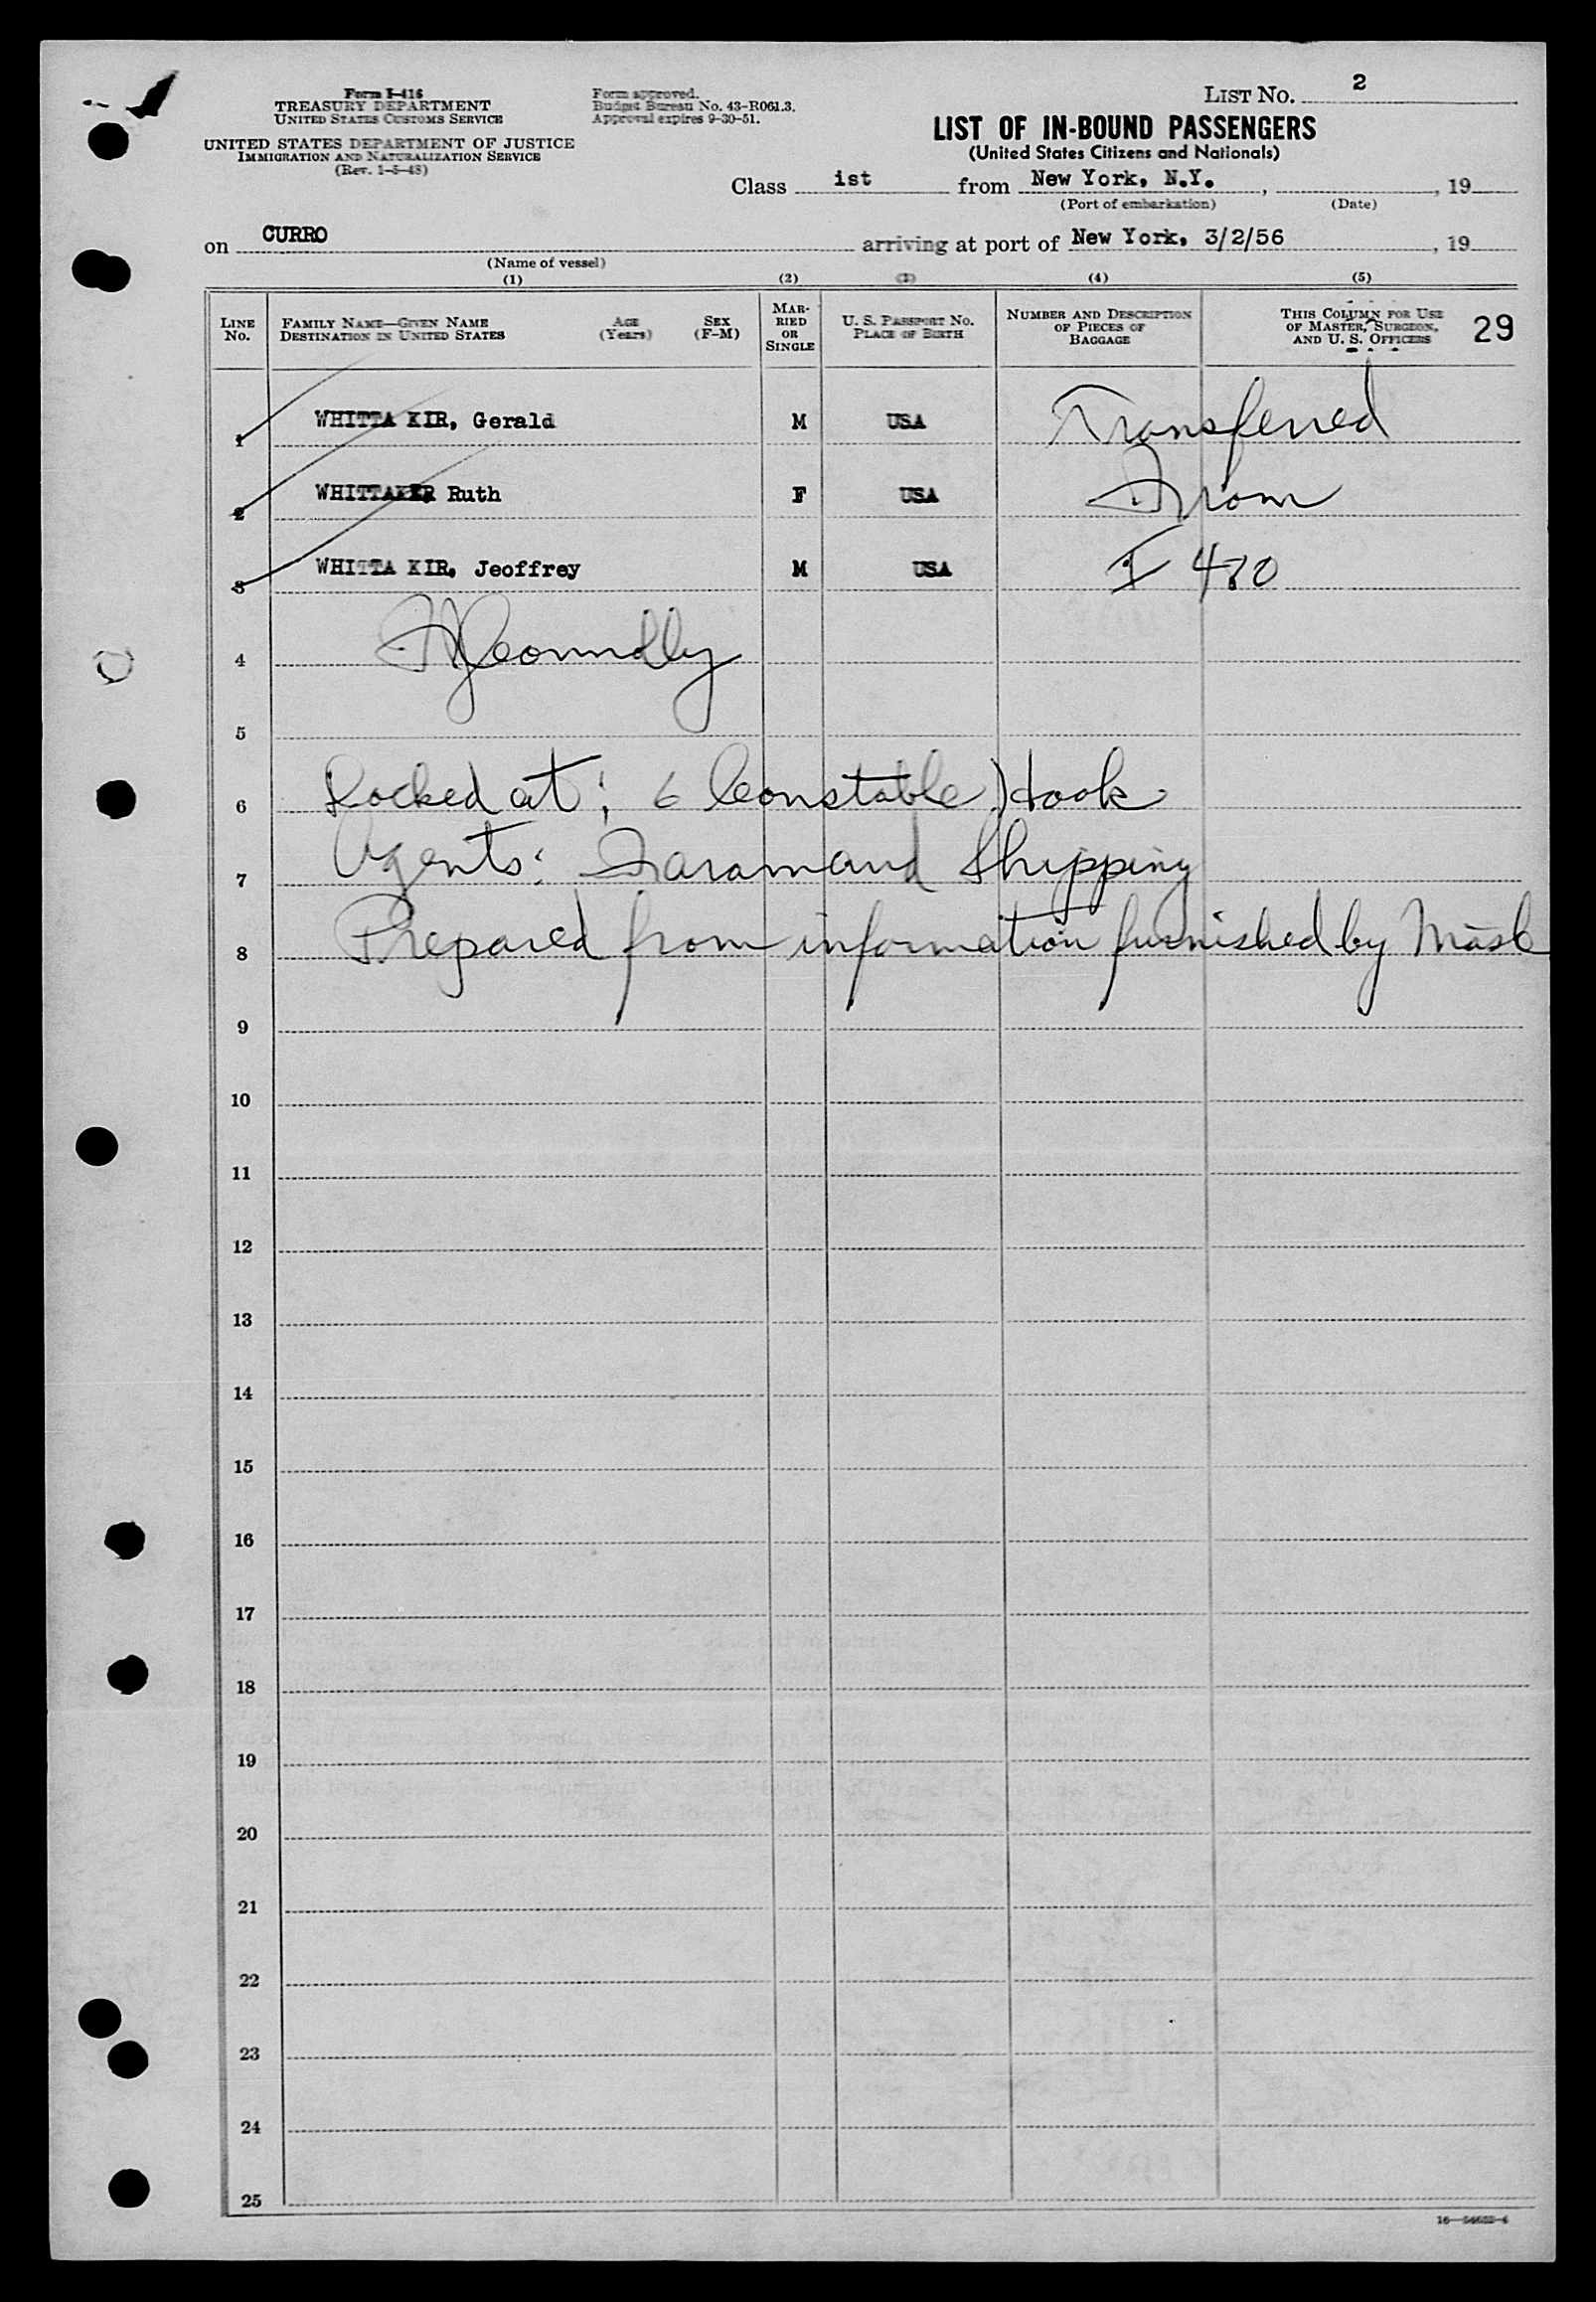 Form I-416
TREASURY DEPARTMENT
UNITED STATES CUSTOMS SERVICE
UNITED STATES DEPARTMENT OF JUSTICE
IMMIGRATION AND NATURALIZATION SERVICE
(Rev. 1-5-48)
Form approved.
Budget Bureau No. 43-R061.3.
Approval expires 9-30-51.
LIST NO. 2
LIST OF IN-BOUND PASSENGERS
(United States Citizens and Nationals)
Class ist from New York, N.Y. , , 19
(Port of embarkation) (Date)
on CURRO arriving at port of New York, 3/2/56 , 19
(Name of vessel)
(1) (2) (3) (4) (5)
LINE NO. FAMILY NAME—GIVEN NAME DESTINATION IN UNITED STATES AGE (Years) SEX (F-M) MARRIED OR SINGLE U. S. PASSPORT NO. PLACE OF BIRTH NUMBER AND DESCRIPTION OF PIECES OF BAGGAGE THIS COLUMN FOR USE OF MASTER, SURGEON, AND U. S. OFFICERS 29
1 WHITTA KIR, Gerald M USA Transferred
2 WHITTAKER Ruth F USA From
3 WHITTA KIR, Jeoffrey M USA I 480
4
5
6 Docked at: 6 Constable Hook
7 Agents: Shipping
8 Prepared from information furnished by
9
10
11
12
13
14
15
16
17
18
19
20
21
22
23
24
25